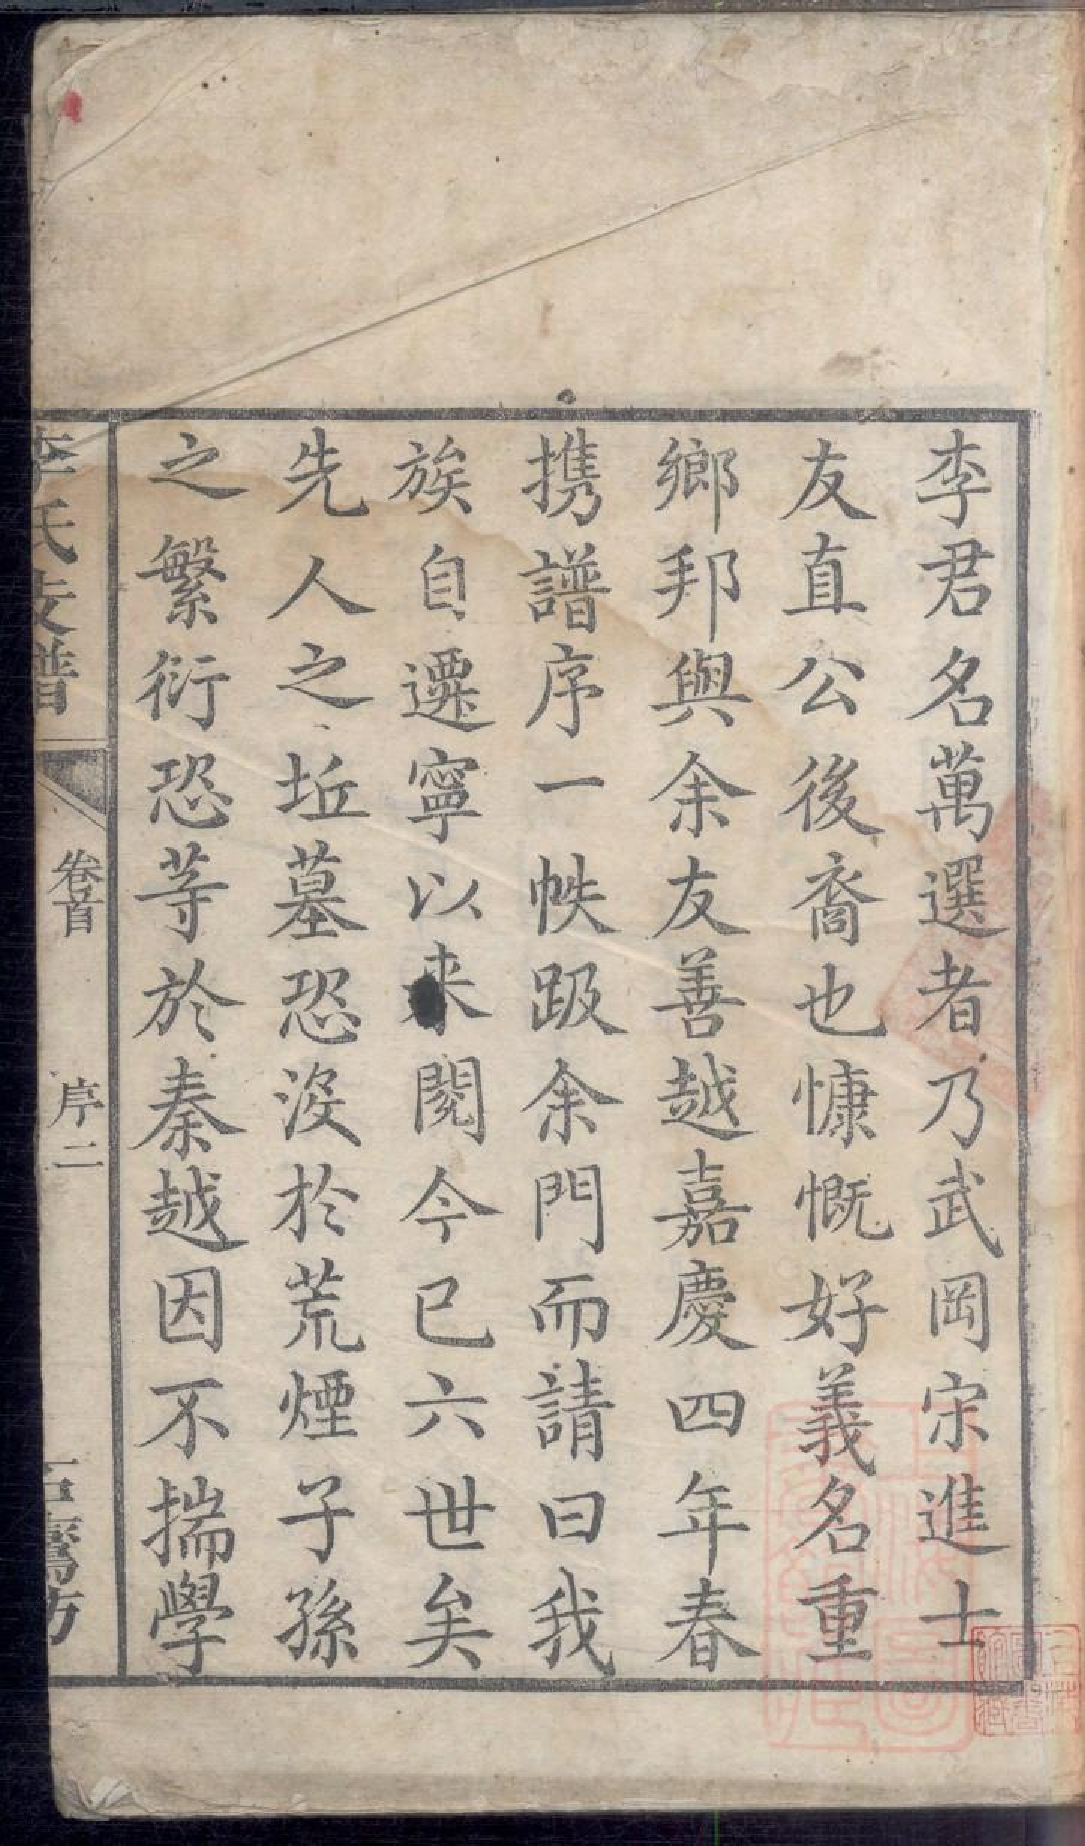 李君名萬選者乃武岡宋進士
友直公後裔也慷慨好義名重
鄉邦與余友善越嘉慶四年春
携譜序一帙踵余門而請曰我
族自遷寧以来閱今已六世矣
先人之坵墓恐没於荒煙子孫
之繁衍恐等於秦越因不揣學
李氏支譜
卷首
序二